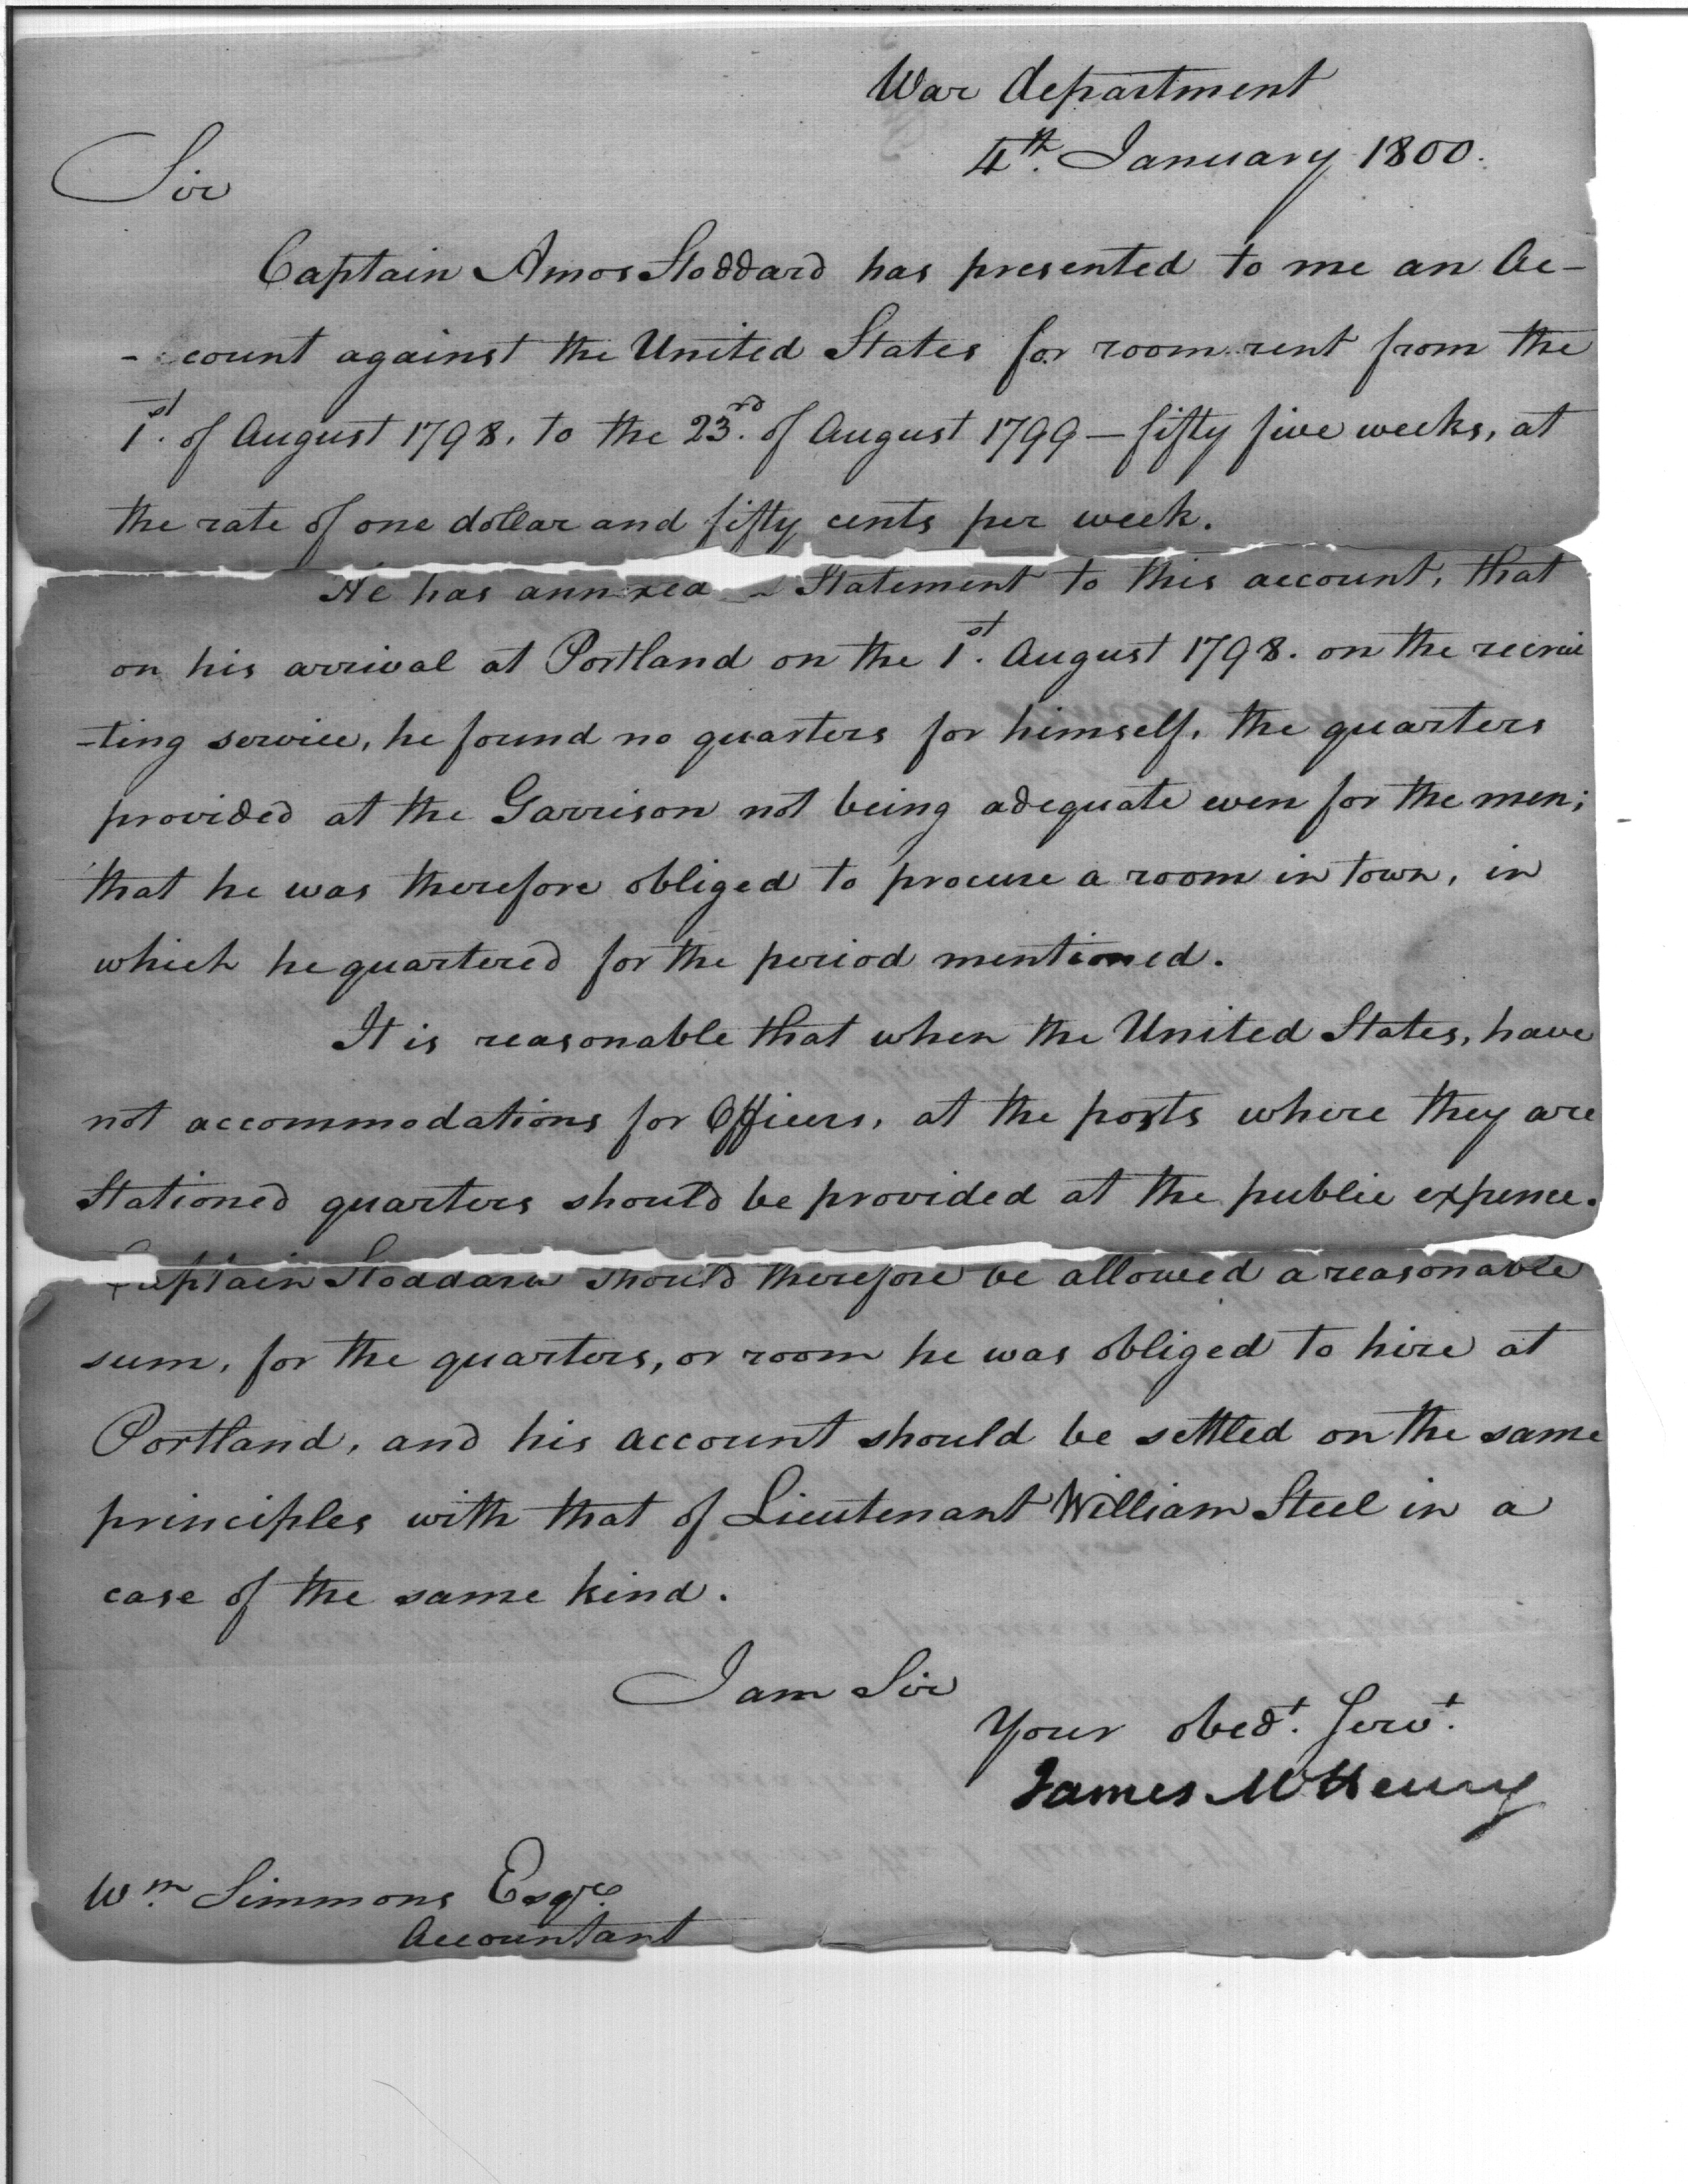 War department
4th. January 1800.
Sir
Captain Amos Stoddard has presented to me an Ac-
-count against the United States for room rent from the
1st. of August 1798. to the 23rd. of August 1799 — fifty five weeks, at
the rate of one dollar and fifty cents per week.
He has annexed a Statement to this account, that
on his arrival at Portland on the 1st. August 1798. on the recrui
-ting service, he found no quarters for himself, the quarters
provided at the Garrison not being adequate even for the men;
that he was therefore obliged to procure a room in town, in
which he quartered for the period mentioned.
It is reasonable that when the United States, have
not accommodations for Officers, at the posts where they are
Stationed quarters should be provided at the public expence.
Captain Stoddard should therefore be allowed a reasonable
sum, for the quarters, or room he was obliged to hire at
Portland, and his account should be settled on the same
principles with that of Lieutenant William Steel in a
case of the same kind.
I am Sir
Your obedt. Servt.
James McHenry
Wm. Simmons Esqre.
Accountant